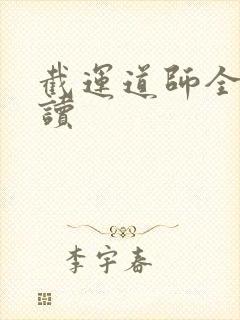 截運道師全
讀
李宇春